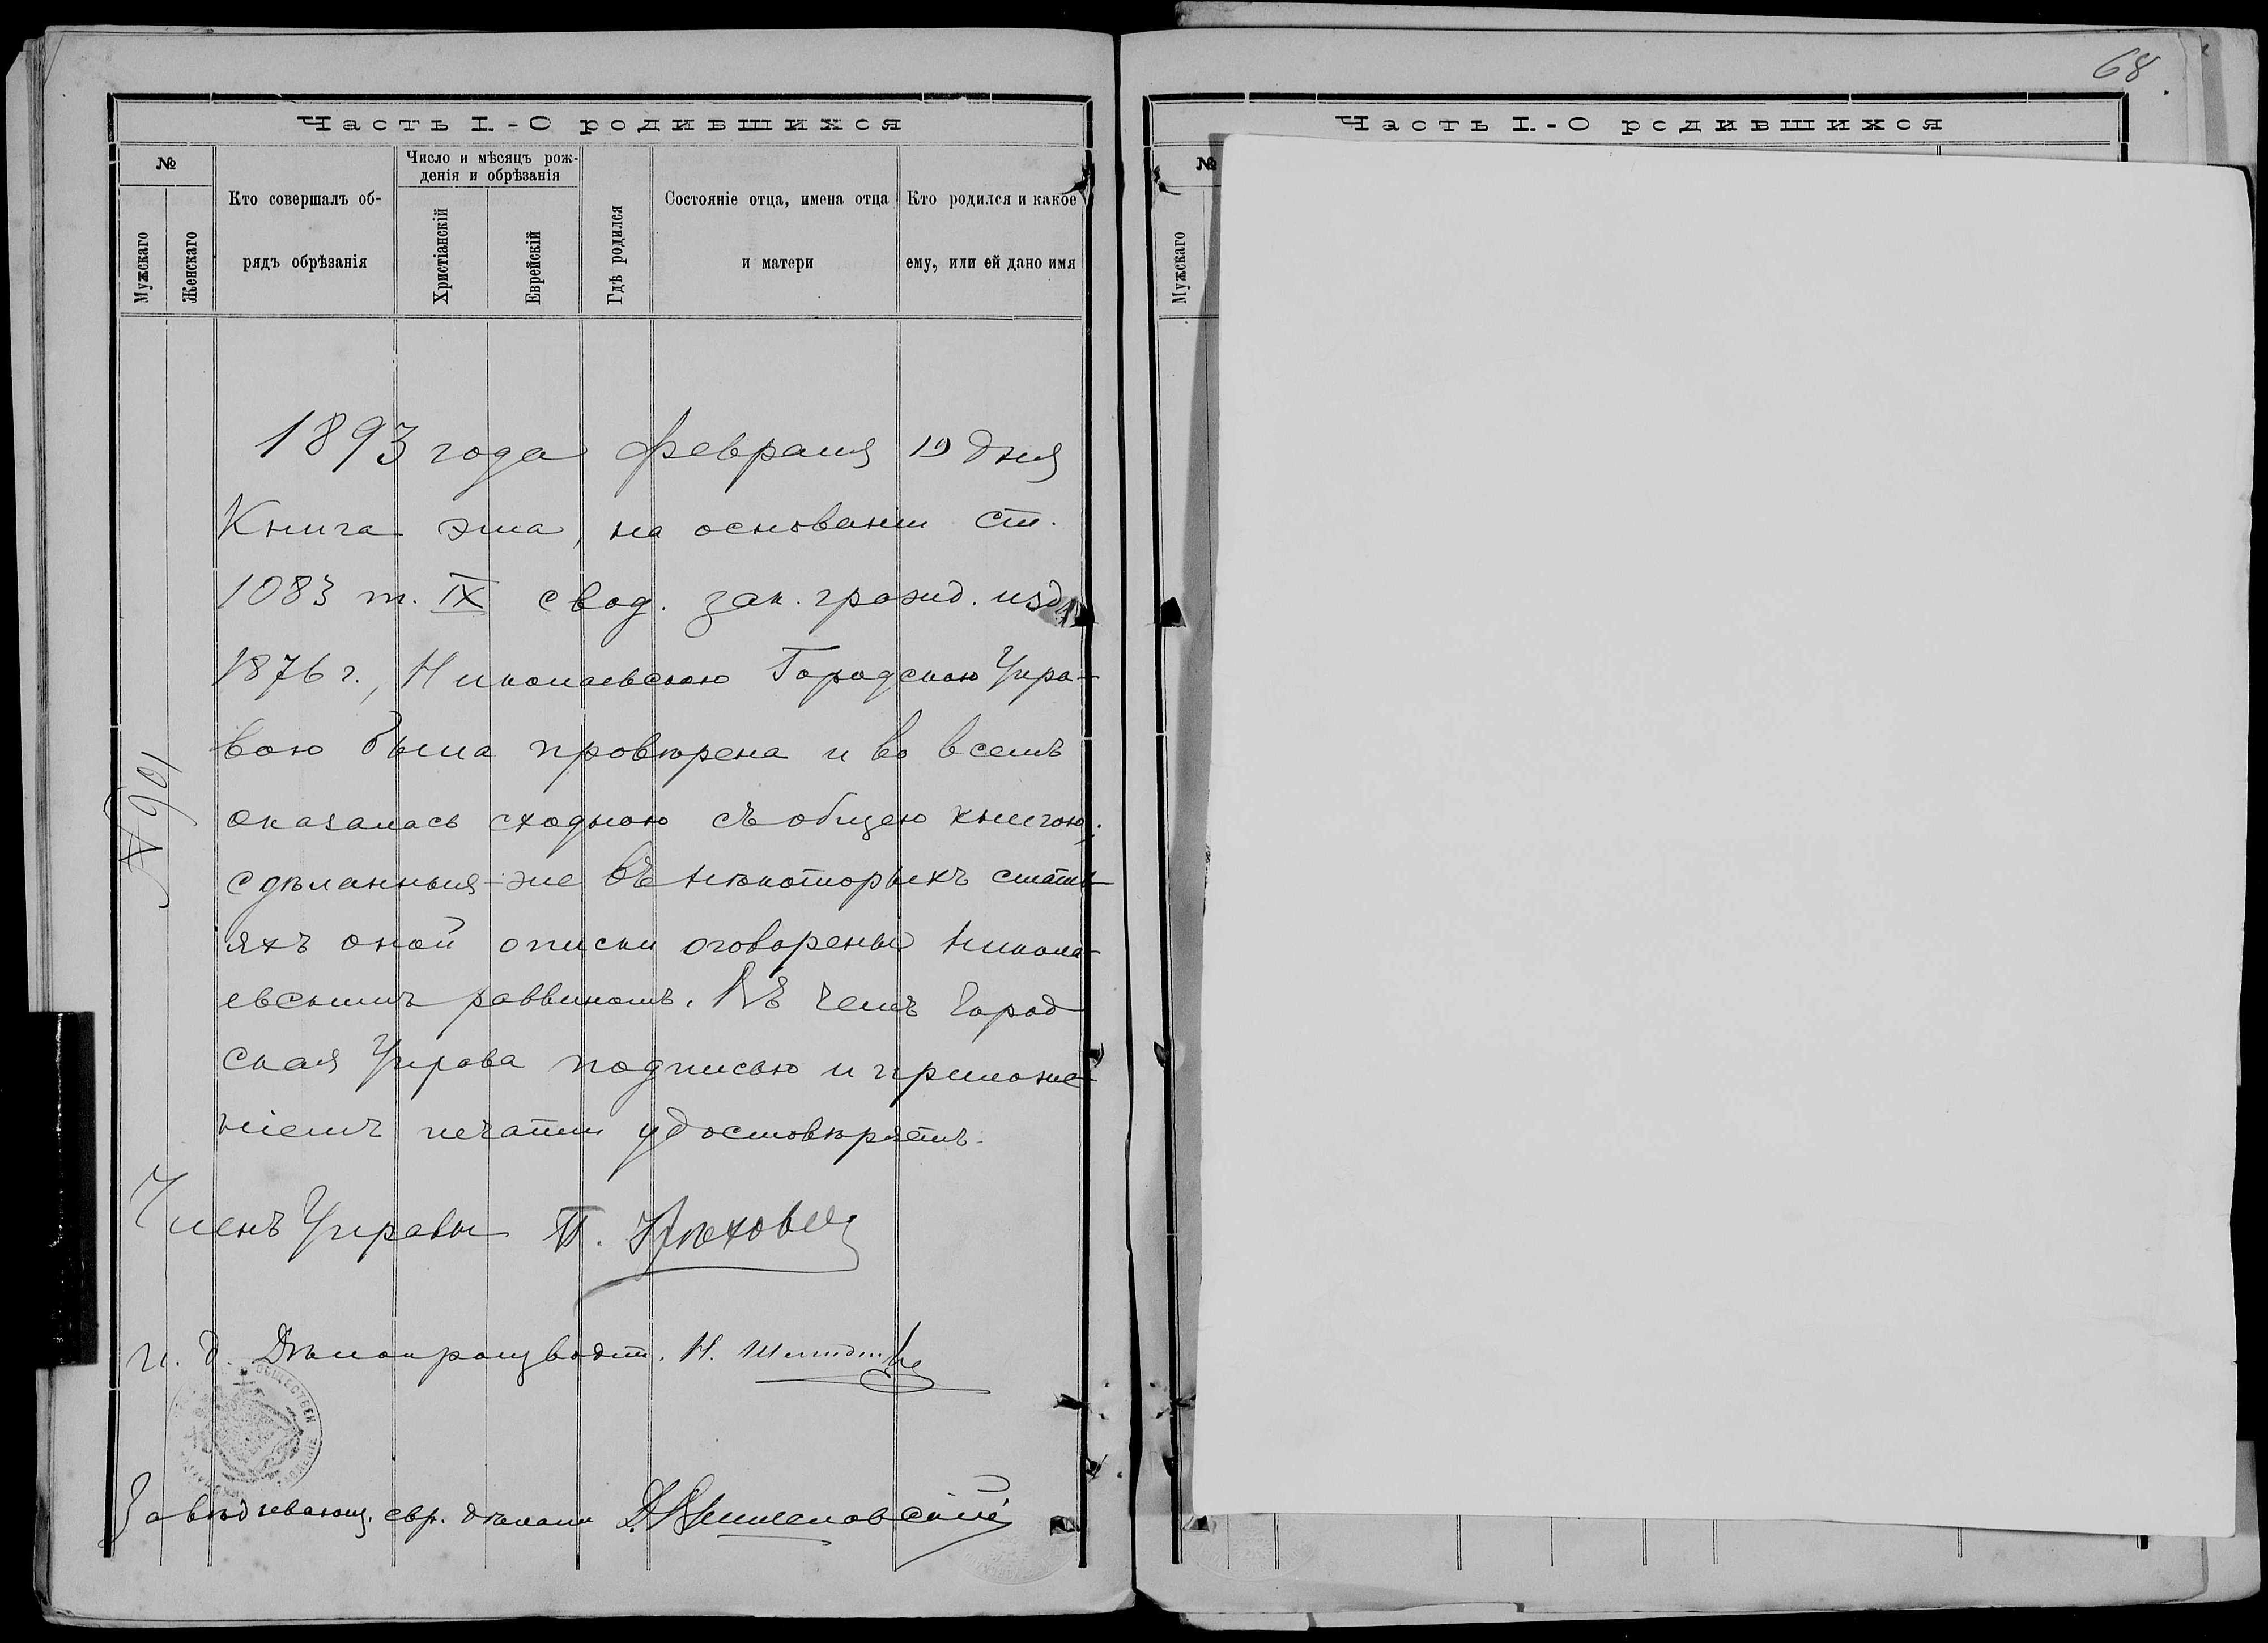 Часть I.-О родившихся
№
Мужскаго
Женскаго
Кто совершалъ об-
рядъ обрѣзанія
Число и мѣсяцъ рож-
денія и обрѣзанія
Христіанскій
Еврейскій
Гдѣ родился
Состояніе отца, имена отца
и матери
Кто родился и какое
ему, или ей дано имя
1893 года февраля 19 дня
Книга эта, на основании ст.
1083 т. IX свод. зак. гражд. изд.
1876 г., Николаевскою Городскою Упра-
вою была провѣрена и во всемъ
оказалась сходною съ общею книгою;
сдѣланныя-же въ нѣкоторыхъ стать-
яхъ оной описки оговорены Никола-
евскимъ раввиномъ. Въ чемъ Город
ская Управа подписью и приложе-
ніемъ печати удостовѣряетъ.
№ 901
Членъ Управы П.
и. д. Дѣлопроизводит. Н.
Завѣдывающ. евр. дѣлами
68
Часть I.-О родившихся
№
Мужскаго